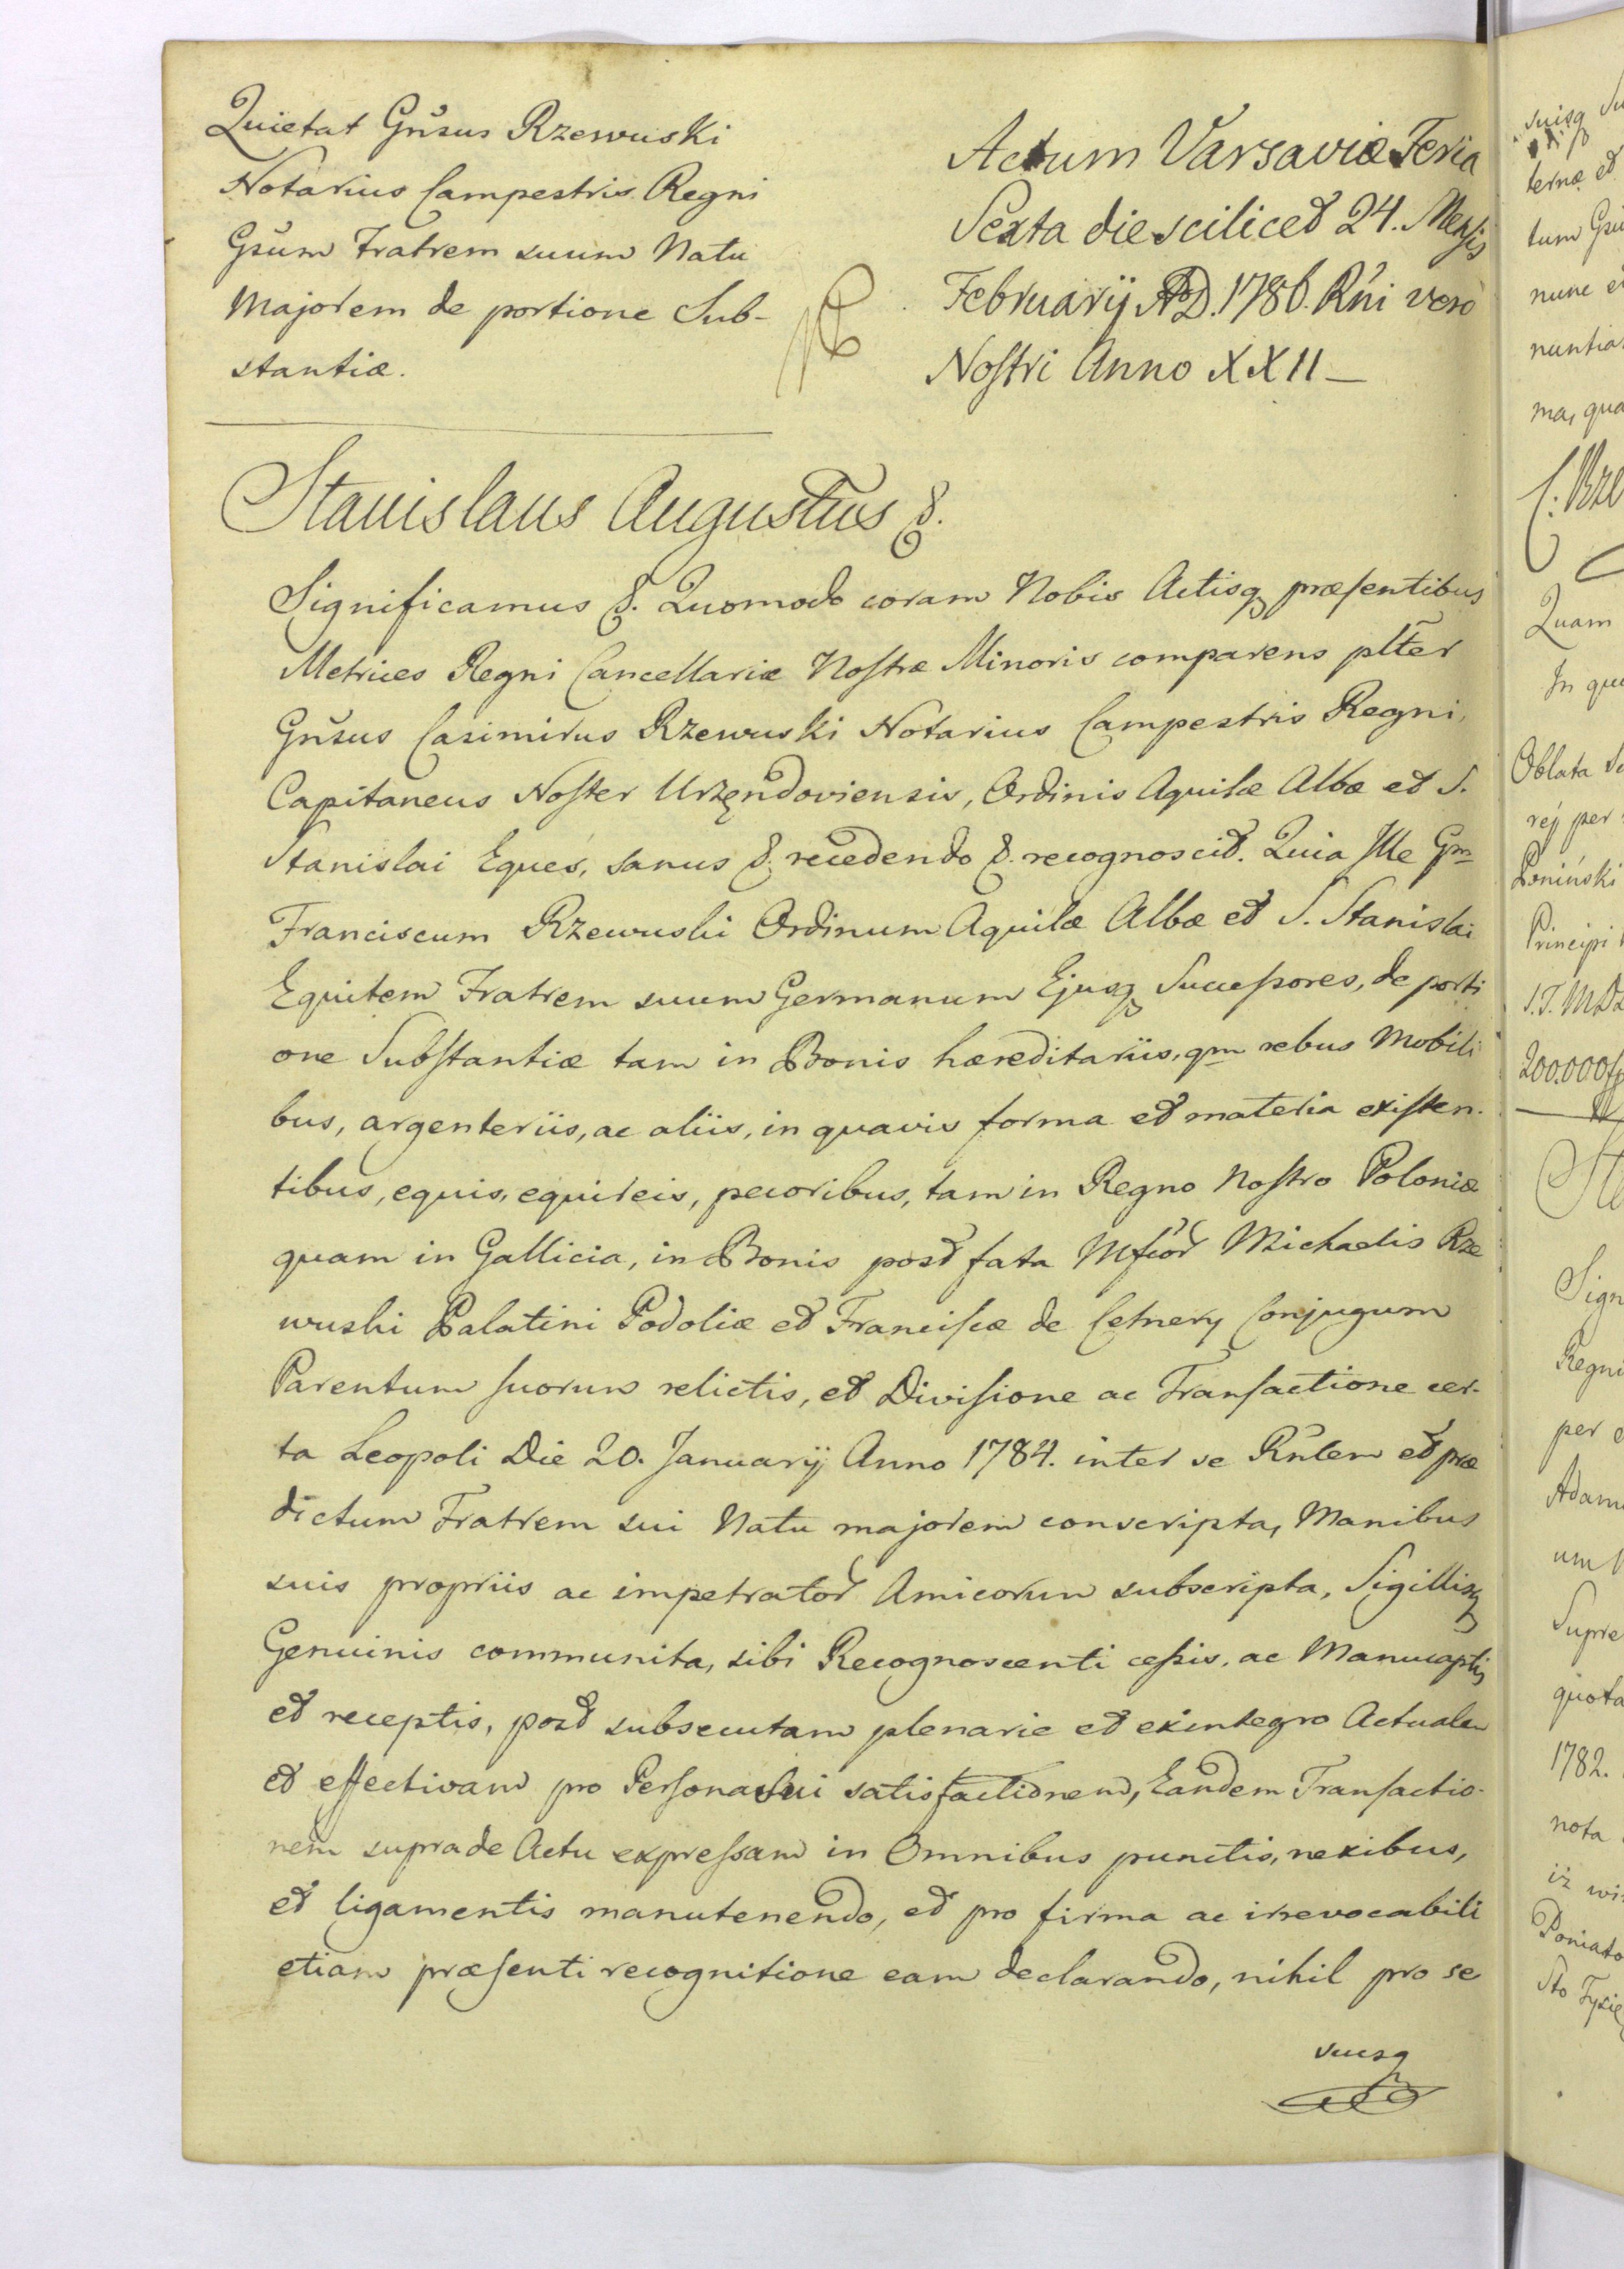 Quietat Gñsus Rzewuski
Notarius Campestris Regni
Gsum Fratrem suum Natu
Majorem de portione Sub-
stantiæ.
Actum Varsaviæ Feria
Sexta die scilicet 24. Mensis
Februarij AoD. 1786. Rñi vero
Nostri Anno XXII –
Stanislaus Augustus &.
Significamus &. Quomodo coram Nobis Actisq præsentibus
Metrices Regni Cancellariæ Nostræ Minoris comparens plter
Gñsus Casimirus Rzewuski Notarius Campestris Regni,
Capitaneus Noster Urzędoviensis, Ordinis Aquilæ Albæ et S.
Stanislai Eques, sanus &. recedendo &. recognoscit. Quia Ille Gm
Franciscum Rzewuski Ordinum Aquilæ Albæ et S. Stanislai
Equitem Fratrem suum Germanum Ejusq Successores, de porti
one Substantiæ tam in Bonis hæreditariis, qm rebus Mobili
bus, argenteriis, ac aliis, in quavis forma et materia existen-
tibus, equis, equireis, pecoribus, tam in Regno Nostro Poloniæ
quam in Gallicia, in Bonis post fata Mfcor Michaelis Rze
wuski Palatini Podoliæ et Franciscæ de Cetnery Conjugum
Parentum suorum relictis, et Divisione ac Transactione cer-
ta Leopoli Die 20. Januarij Anno 1784. inter se Rñtem et præ
dictum Fratrem sui Natu majorem conscripta, Manibus
suis propriis ac impetrator Amicorum subscripta, Sigillisq
Genuinis communita, sibi Recognoscenti cessis, ac Manucaptis
et receptis, post subsecutam plenarie et exintegro Actualem
et effectivam pro Persona Sui satisfactionem, Eandem Transactio-
nem supra de Actu expressam in Omnibus punctis, nexibus,
et ligamentis manutenendo, et pro firma ac irrevocabili
etiam præsenti recognitione eam declarando, nihil pro se
suisq
suisq
ternæ et
nunc et
nuntia
ma, qua
Quam
Oblata
rej per
Poniński
Principi
200.000
Sign
Regni
per
Adam
Supre
quota
1782.
nota
iż
Poniato